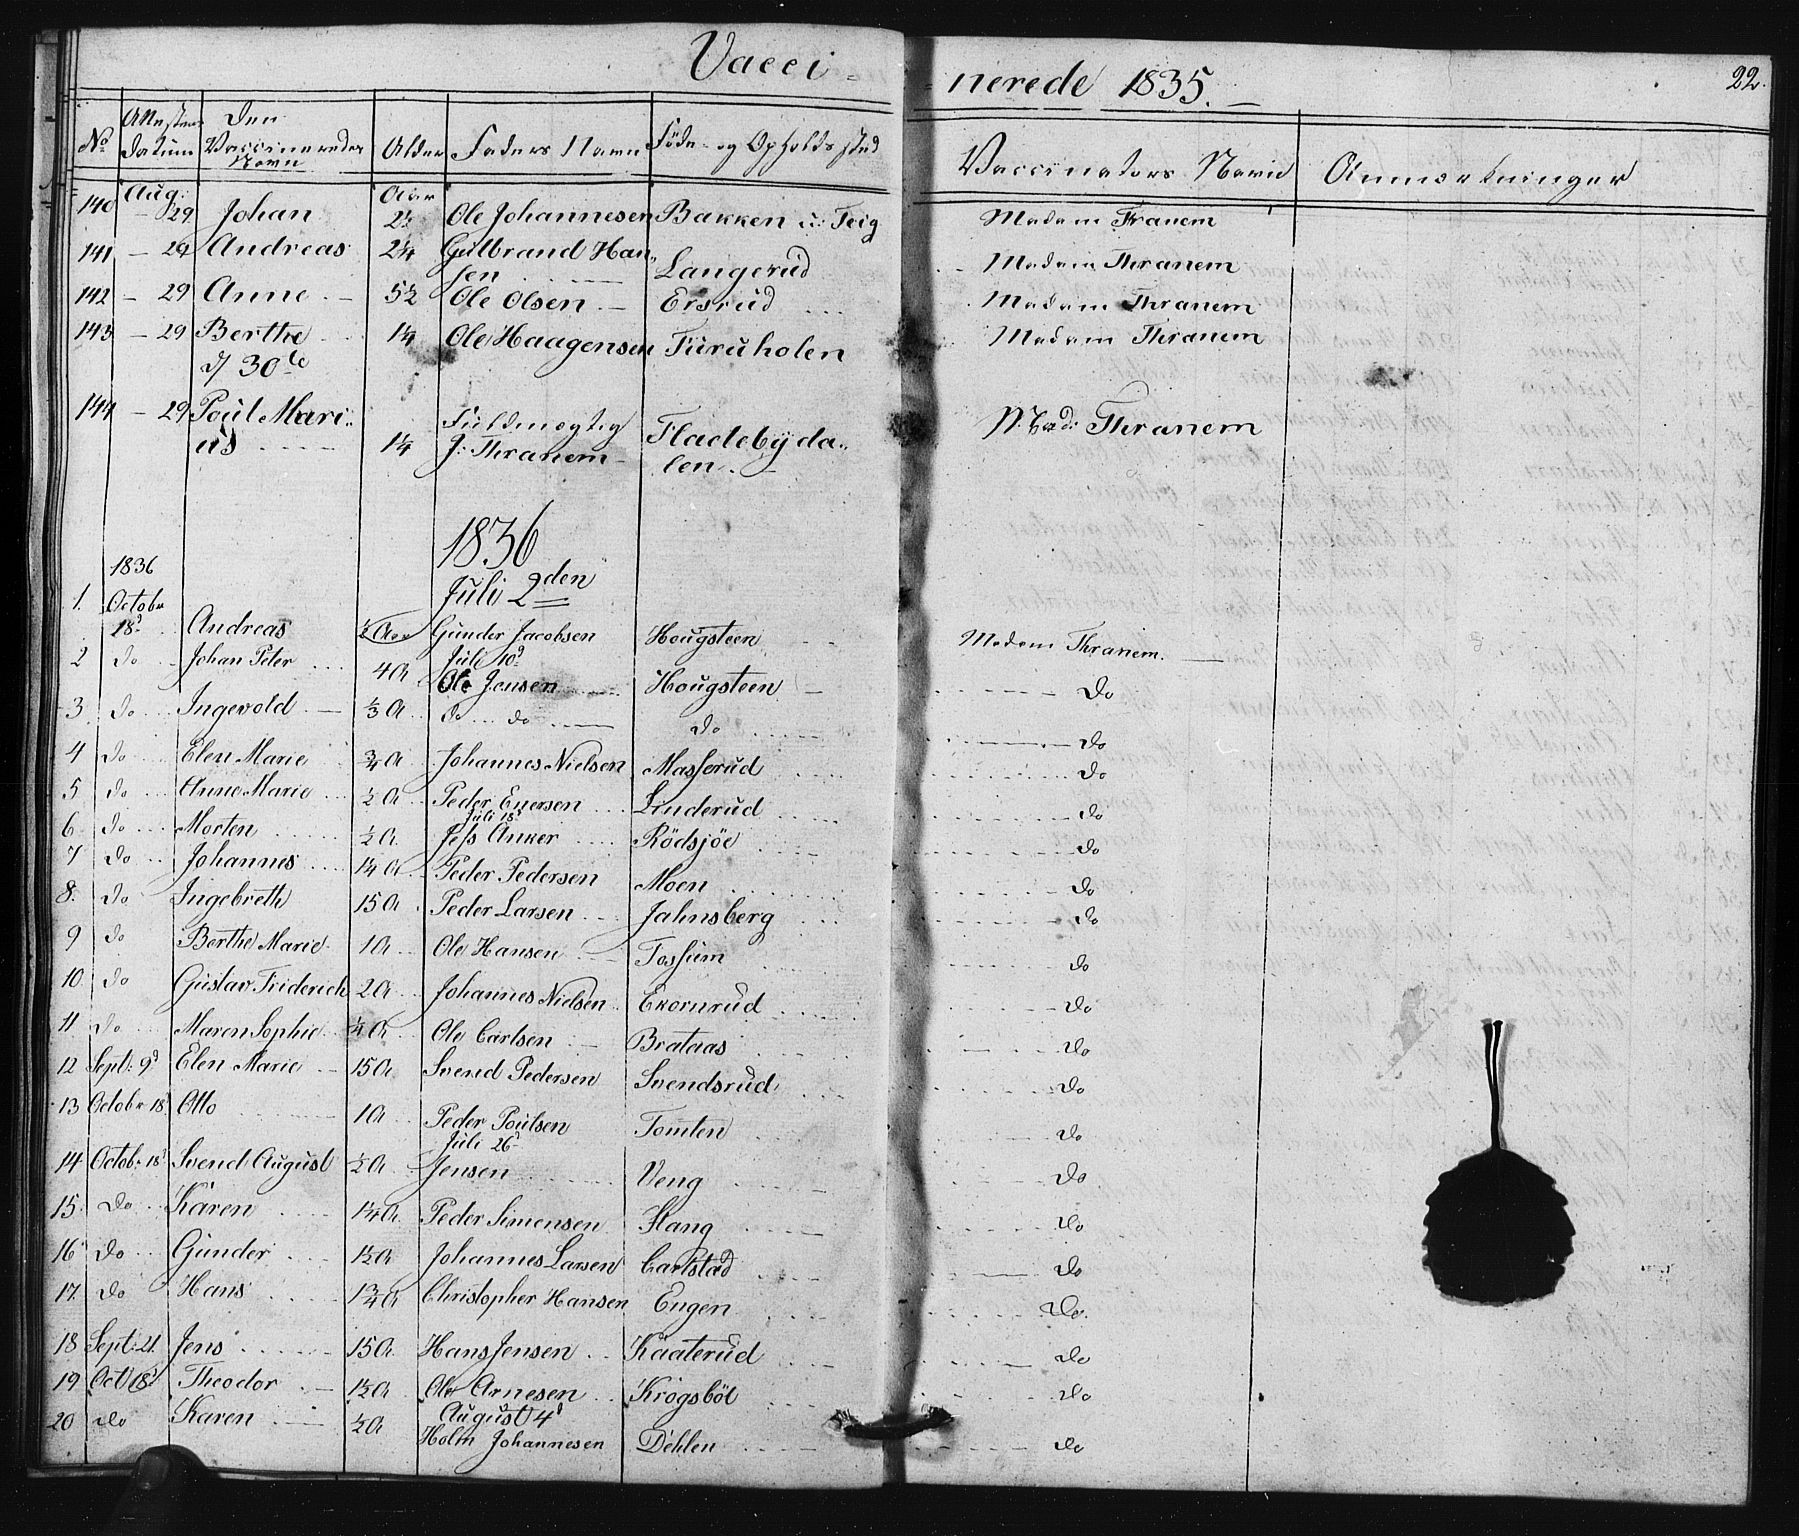 Vacci-nerede 1835.
22.
No Attestens Datum Den Vaccineredes Navn Alder Faders Navn Föde- og Opholds sted Vaccinators Navn Anmærkninger
Aug: Aar
140 - 29 Johan 2½ Ole Johannesen Bakken u: Teig Madam Thranem
141 - 29 Andreas 2¼ Gulbrand Han-
sen Langerud Madam Thranem
142 - 29 Anne 5½ Ole Olsen Ersrud Madam Thranem
143 - 29 Berthe 1¼ Ole Haagensen Furuholen Madam Thranem
d 30te
144 - 29 Poul Mari-
us 1¼ Fuldmægtig
J: Thranem Fladebyda-
len Thranem
1836
1836 Juli 2den
1. Octobr
18d Andreas ½ Aar Gunder Jacobsen Hougsteen Madam Thranem.
Juli 10d
2 do Johan Peter 4 A Ole Jensen Hougsteen do
3 do Ingevold ⅓ A do do do do
4 do Elen Marie ¾ A Johannes Nielsen Masserud do
5 do Anne Marie ½ A Peder Enersen Linderud do
Juli 18d
6 do Morten ½ A Jess Anker Rödsjöe do
7 do Johannes 1¼ A Peder Pedersen Moen do
8. do Ingebreth 15 A Peder Larsen Jahnsberg do
9 do Berthe Marie 1 A Ole Hansen Fossum do
10. do Gustav Friderich 2 A Johannes Nielsen Ekornrud do
11 do Maren Sophie ¼ A Ole Carlsen Brataas do
12 Sept: 9d Elen Marie 15 A Svend Pedersen Svendsrud do
13 Octobr 18d Otto 1 A Peder Poulsen Tomten do
Juli 26d
14 Octobr 18d Svend August ½ A Jensen Veng do
15. do Karen 1¼ A Peder Simensen Stang do
16 do Gunder 1½ A Johannes Larsen Carlstad do
17. do Hans 1¾ A Christopher Hansen Engen Do.
18 Sept: 21. Jens 15 A Hans Jensen Kaaterud do
19 Oct 18d Theodor 1½ A Ole Arnesen Krogsböl do
August 4d
20 do Karen ½ A Holm Johannesen Dehlen do